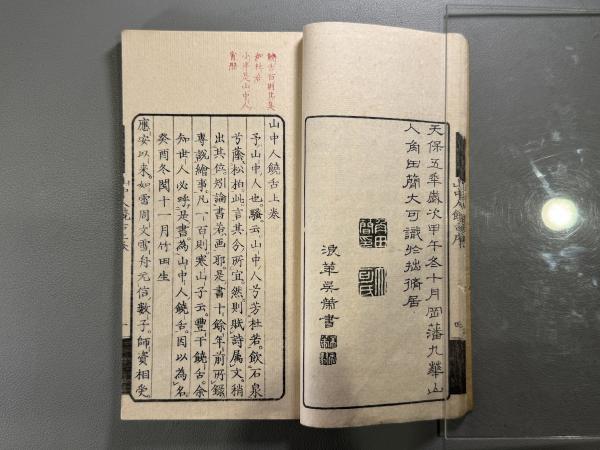 天保五秊歲次甲午冬十月岡藩九華山
人角田簡大可識於拙脩居
浪華吳策書
山中人饒舌序
四
山中人饒舌上卷
予山中人也。騷云。山中人兮芳杜若。飲石泉
兮蔭松柏。此言其分所宜。然則賦詩属文。稍
出其位。矧論書若画耶。是書十餘年前所録
專說繪事。凡一百則。寒山子云。豐干饒舌。余
知世人必呼是書為山中人饒舌。因以為名
癸酉冬閏十一月竹田生
應安以来。如雪周文雪舟元信數子。師資相受。